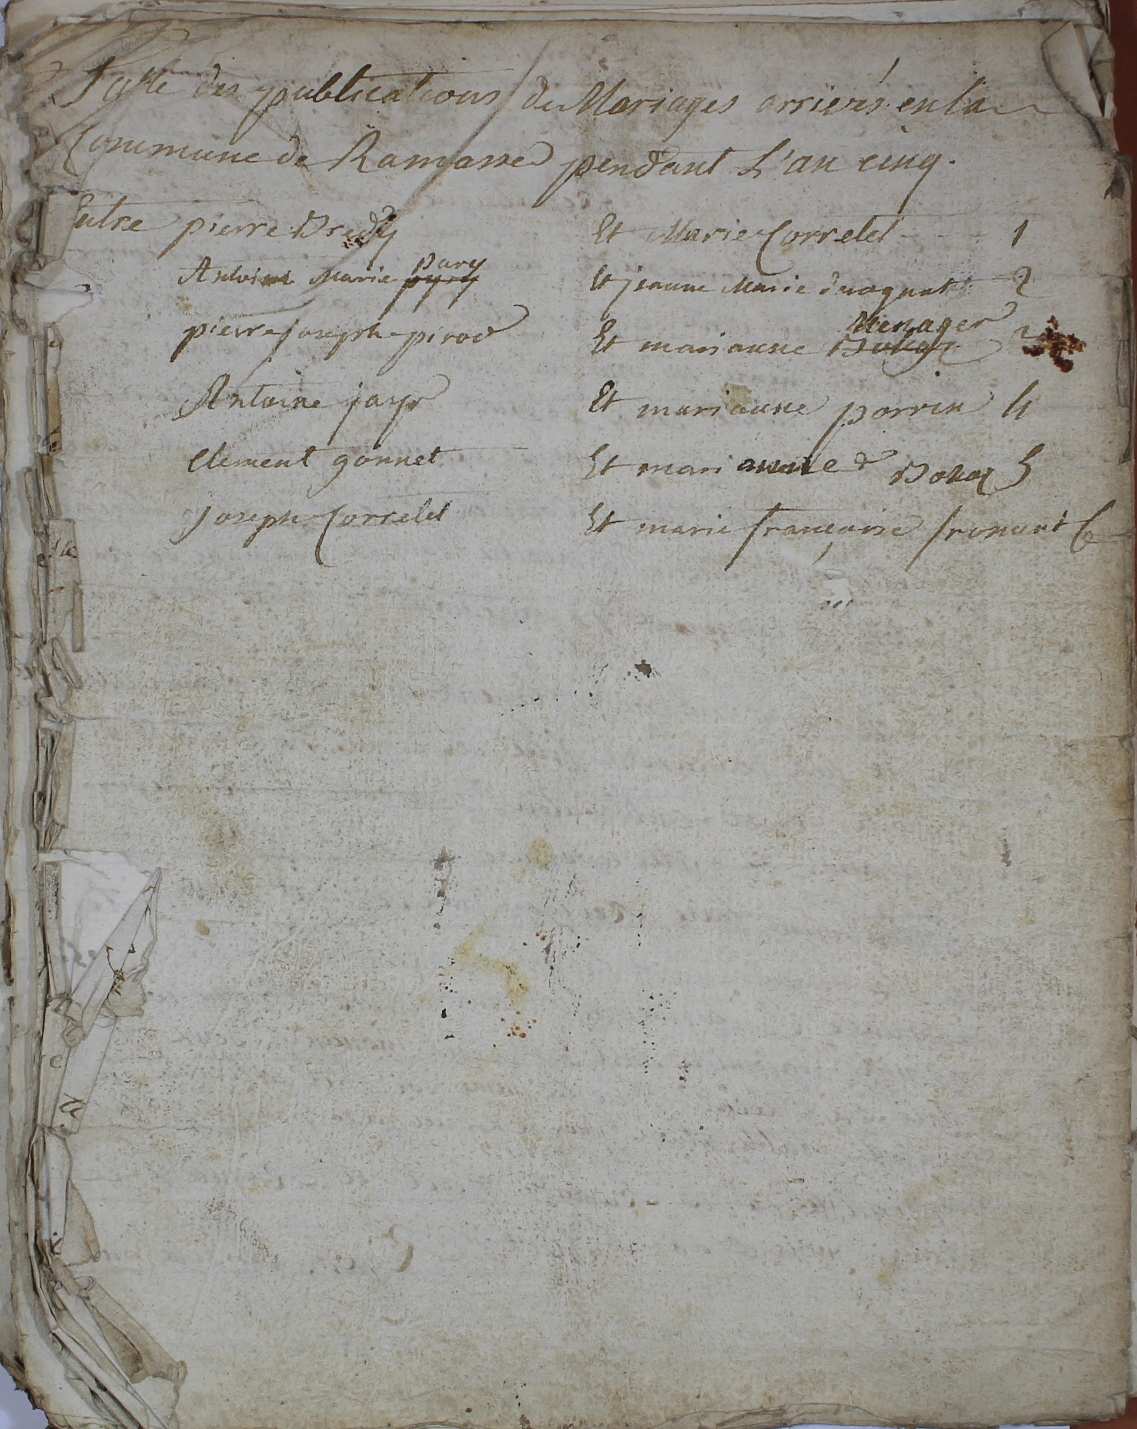 des publications de Mariages arrivés en la
Commune de Ramasse pendant L'an cinq.
Entre pierre Bredy Et Marie Correlet 1
Antoine Marie pary Et jeanne Marie 2
pierre joseph pirod Et mariaune Menager
Antoine jayr Et mariaune porrin 4
Clement gonnet Et mari anne 5
Joseph Correlet Et marie francoise froment 6